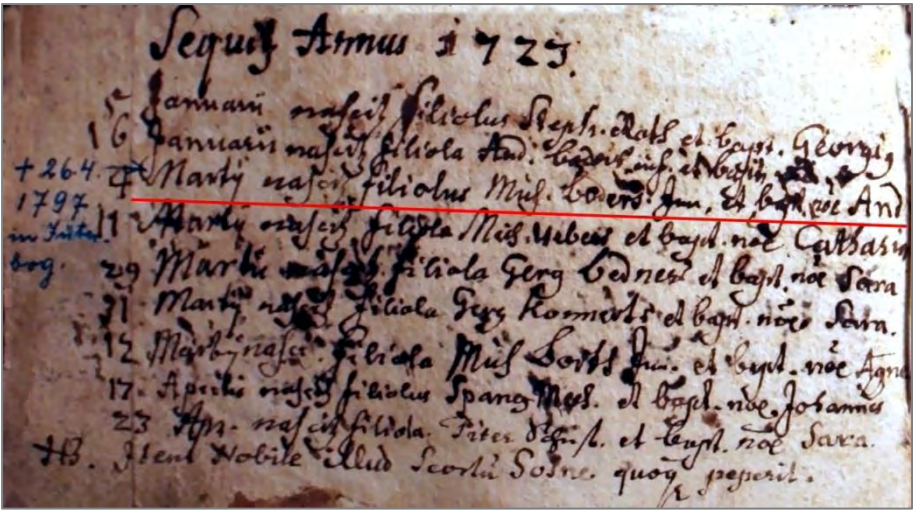 Sequit Annus 1723.
5 Januarii nascit filiolus Steph. Roth et bapt. Georgig
16 Januarii nascit filiola And. et bapt.
4 Martij nascit filiolus Mich. Boders Jun. et bapt. noe And
11 Martij nascit filiola Mich. et bapt. noe Catharin
29 Martii nascit filiola Gerg Bedners et bapt. noe Sara
31 Martij nascit filiola Gerg Konnerts et bapt. noe Sara.
12 Martij nascit filiola Mich Boths Jun. et bapt. noe Agne
17. Aprilis nascit filiolus Spang Mich. et bapt. noe. Johannes
23 Apr. nascit filiola. Piter Schust. et bapt. noe Sara.
NB. Item Nobile illud Scortū quoq peperit.
+ 26 4
1797
in Jüter
bog.